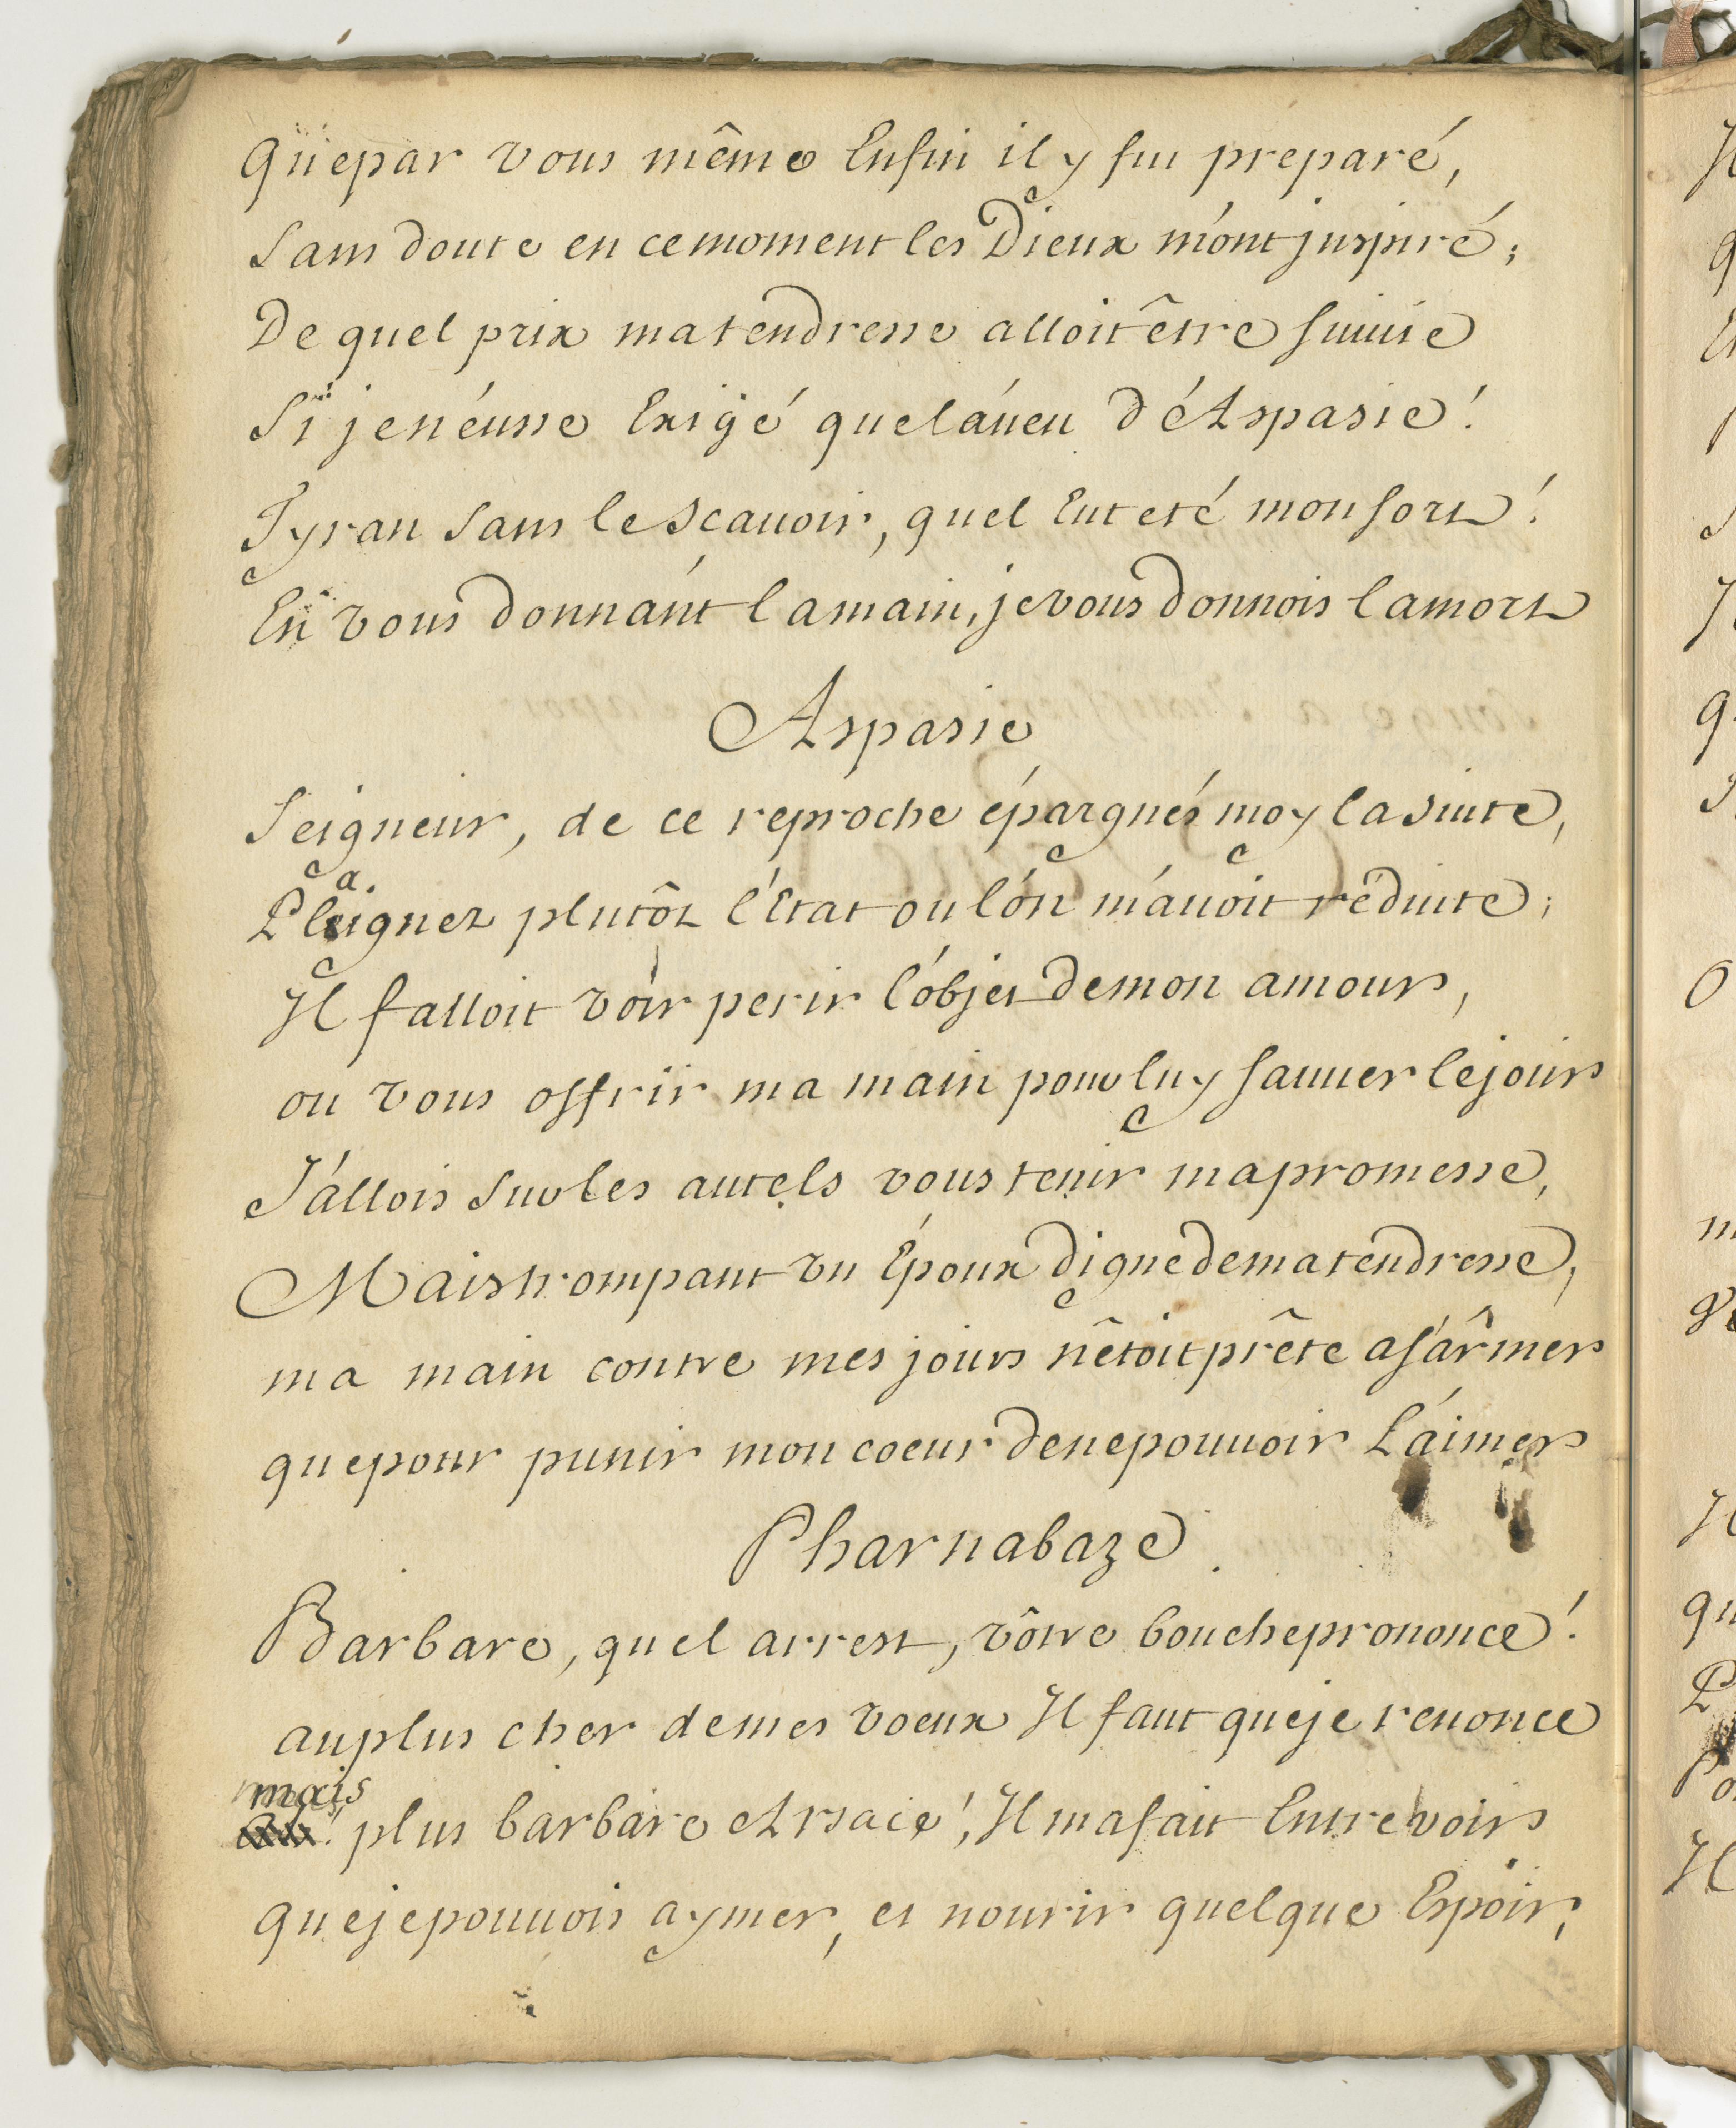 Quepar vous même Enfin il y fut preparé,
Sans doute en cemoment les Dieux m'ont jnspiré;
De quel prix matendresse alloit être suiuie
Si jen'eusse Exigé quel'áueu d'Aspasie!
Tyran sans le scauoir, quel Eut eté mon sort!
En vous donnant lamain, je vous donnois lamort
Aspasie
Seigneur, de ce reproche épargnés moy la suite,
a.
Pleignez plutôt l'Etat ou l'on m'auoit réduite;
Il falloit voir perir l'objet demon amour,
ou vous offrir ma main pour luy sauuer lejour
J'allois sur les autels vous tenir mapromesse,
Mais trompant vn Époux digne dematendresse,
ma main contre mes jours n'êtoit prête a s'ârmer
quepour punir mon coeur denepouuoir L'aimer
Pharnabaze.
Barbare, quel arrest, vôtre boucheprononce!
auplus cher demes voeux Il faut queje renonce
mais
plus barbare Arsace!, Il mafait Entrevoir
quejepouuois aymer, et nourir quelque Espoir,